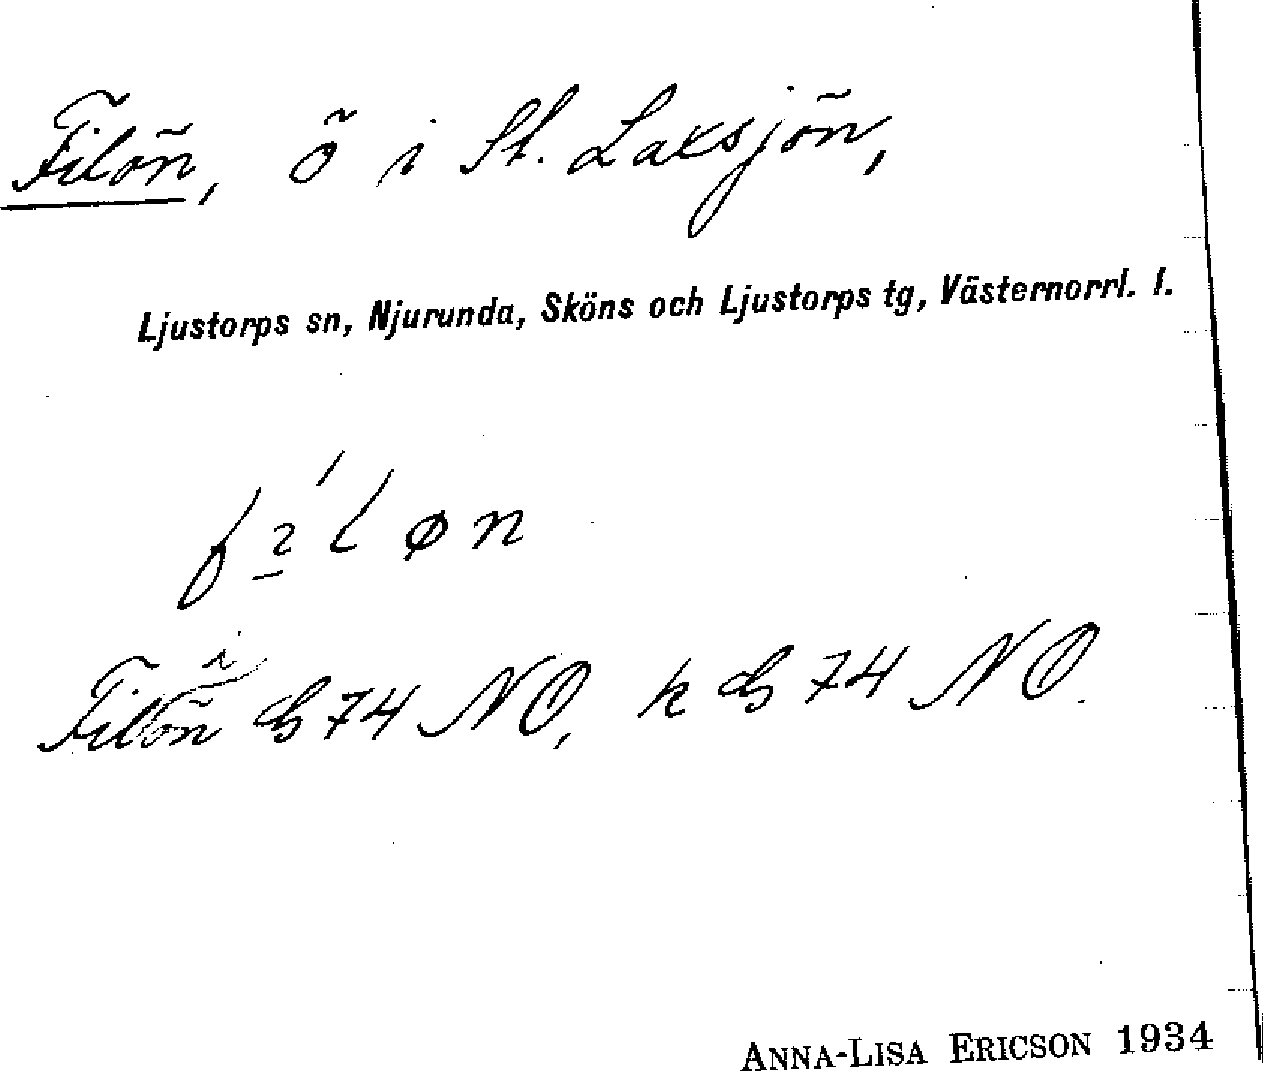 Filön, ö i St. Laxsjön,
Ljustorps sn, Njurunda, Sköns och Ljustorps tg, Västernorrl. l.
Filön G 74 NO, k G 74 NO.
ANNA-LISA ERICSON 1934